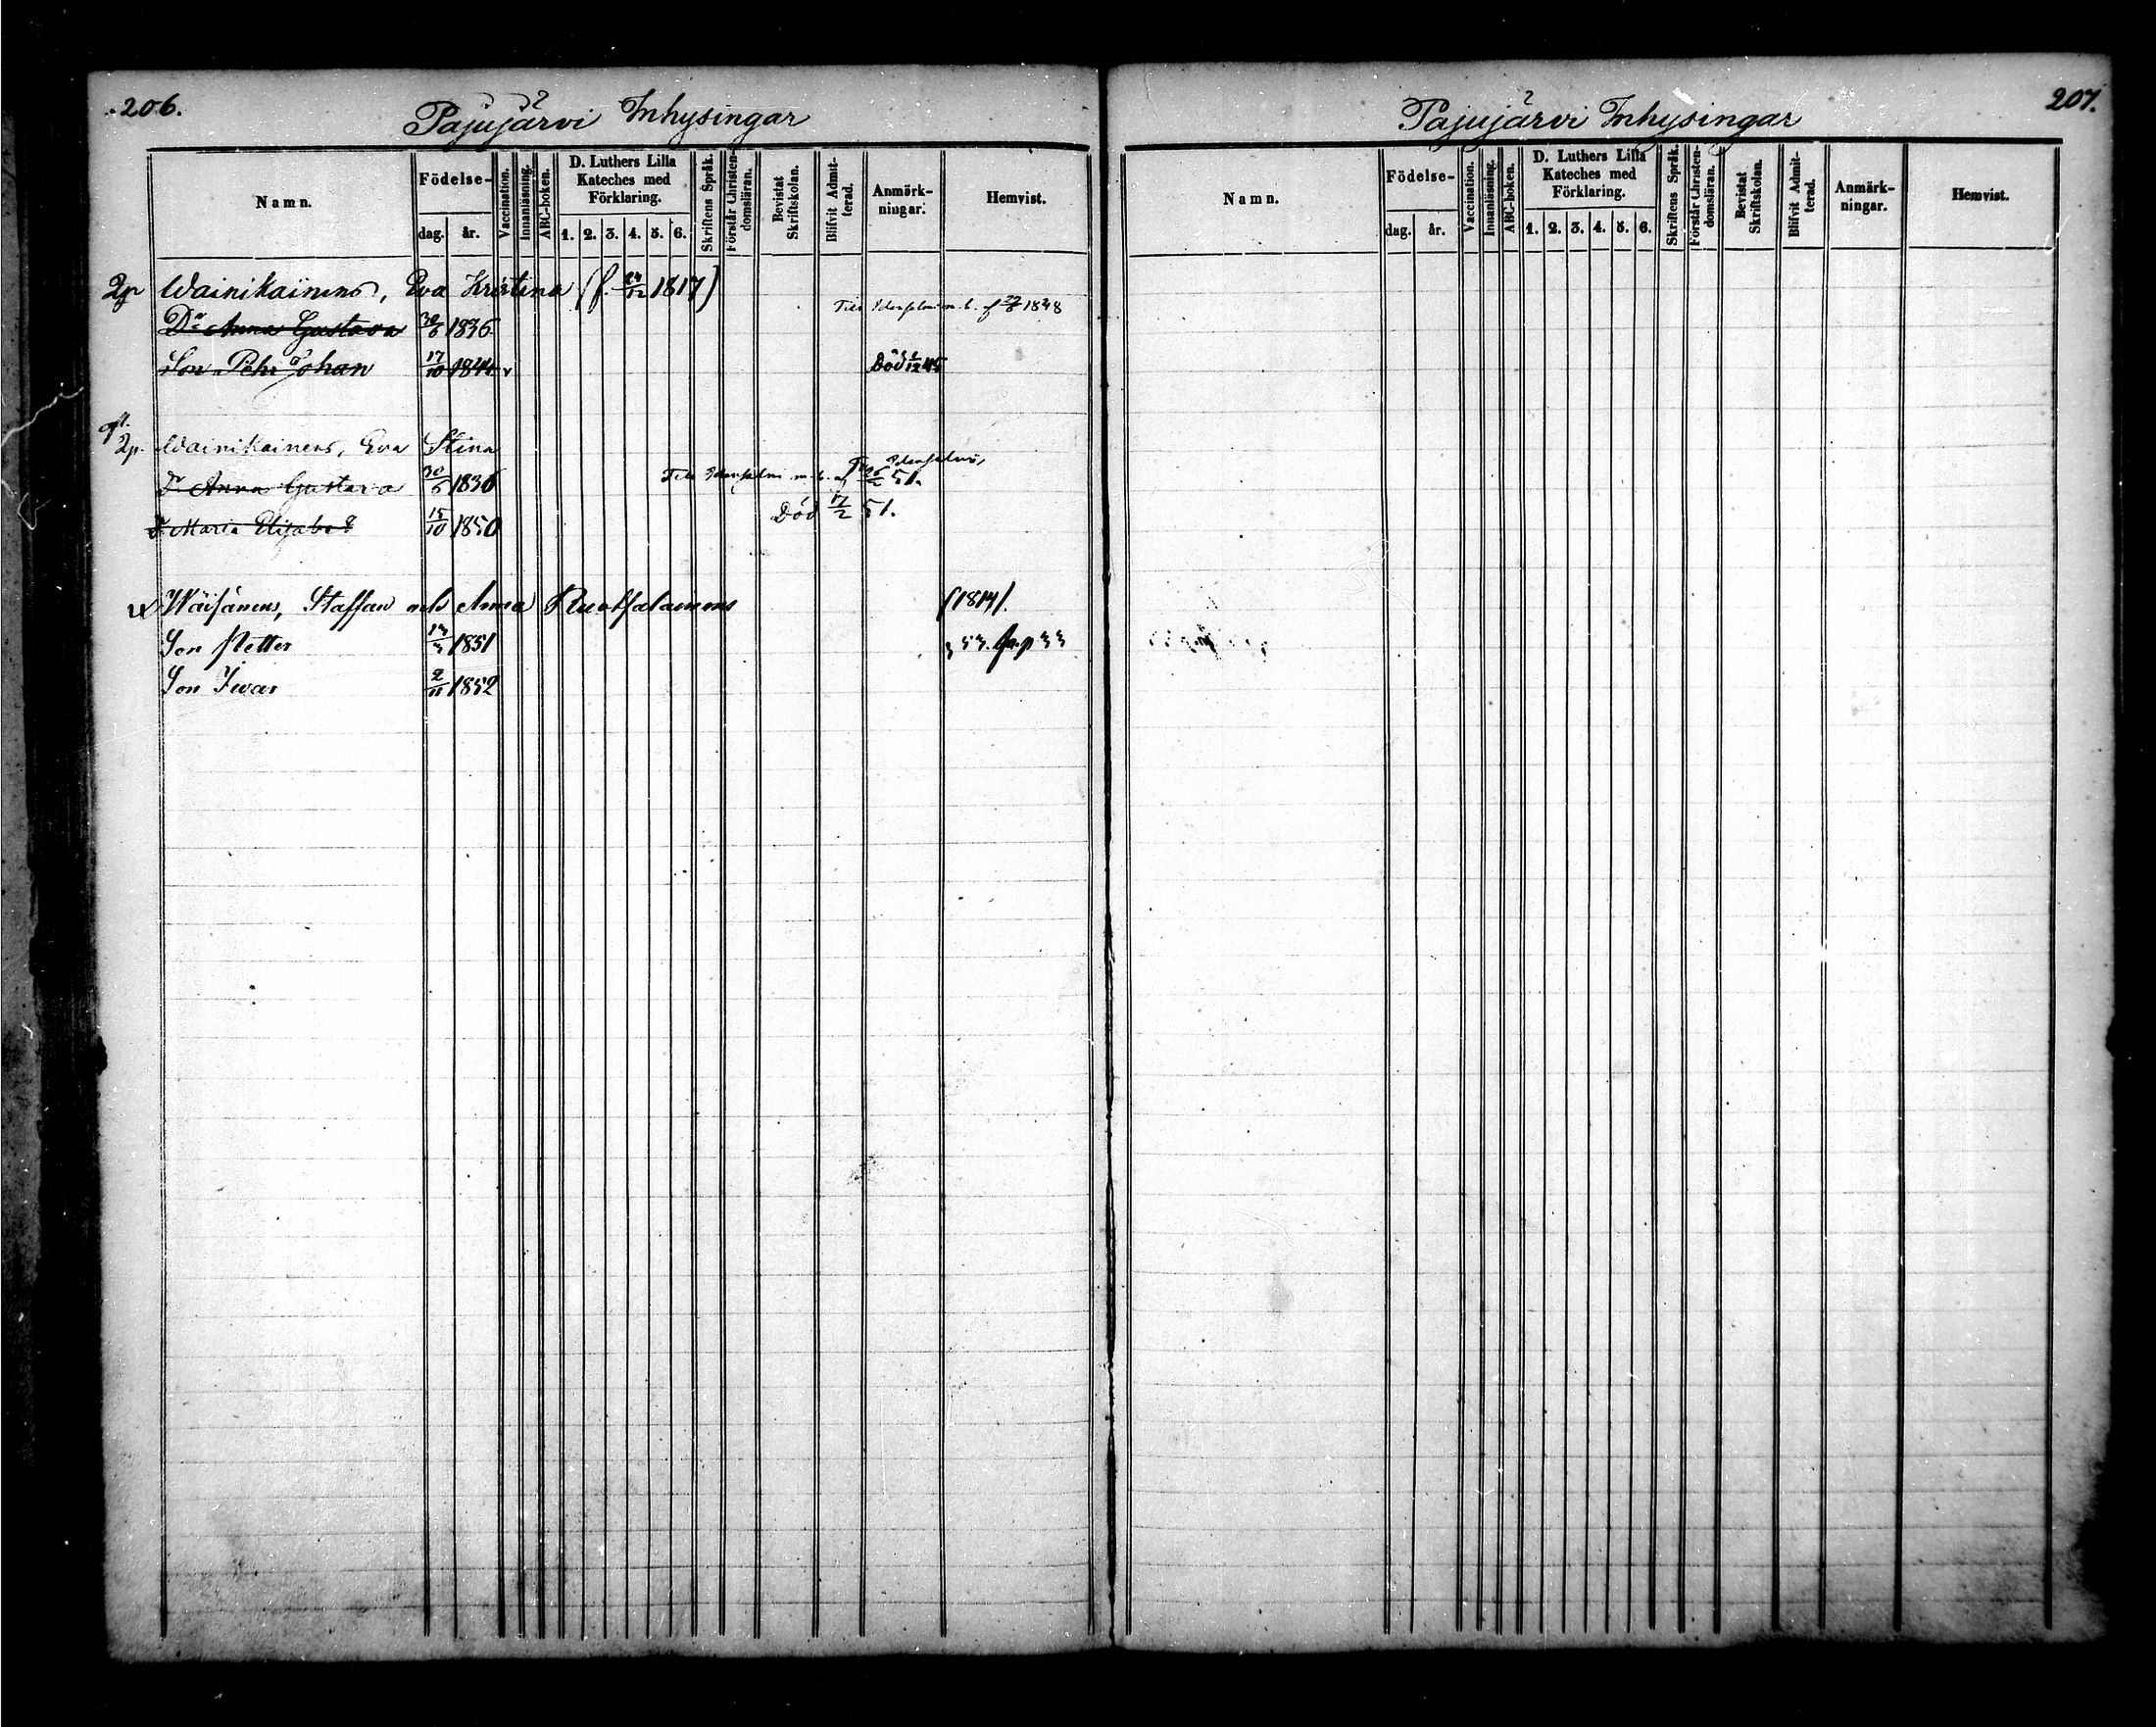 206.
Pajujärvi 2 Inhysingar
Namn.
Födelse-
dag. år.
Vaccination.
Innanläsning.
ABC-boken.
D. Luthers Lilla
Kateches med
Förklaring.
1. 2. 3. 4. 5. 6.
Skriftens Språk.
Förstår Christen-
domsläran.
Bevistat
Skriftskolan.
Blifvit Admit-
terad.
Anmärk-
ningar.
Hemvist.
2p Wainikainens, Eva Kristina (f. 24/12 1817)
Dr Anna Gustava 30/6 1836 Till Idensalmi m. b. af 1848
Son Pehr Johan 17/10 1844 v Död 1/12 45
2p. Wainikainens, Eva Stina
Dr Anna Gustava 30/6 1836 Till Idensalmi m. b. af 51.
Idensalmi,
D. Maria Elisabet 15/10 1850 Död 17/2 51.
Wäisänens, Staffan Anna Ruotsalainens (1814).
Son Petter 13/3 1851 53. p 33
Son Iwar 2/11 1852
207.
Pajujärvi 2 Inhysingar
Namn.
Födelse-
dag. år.
Vaccination.
Innanläsning.
ABC-boken.
D. Luthers Lilla
Kateches med
Förklaring.
1. 2. 3. 4. 5. 6.
Skriftens Språk.
Förstår Christen-
domsläran.
Bevistat
Skriftskolan.
Blifvit Admit-
terad.
Anmärk-
ningar.
Hemvist.